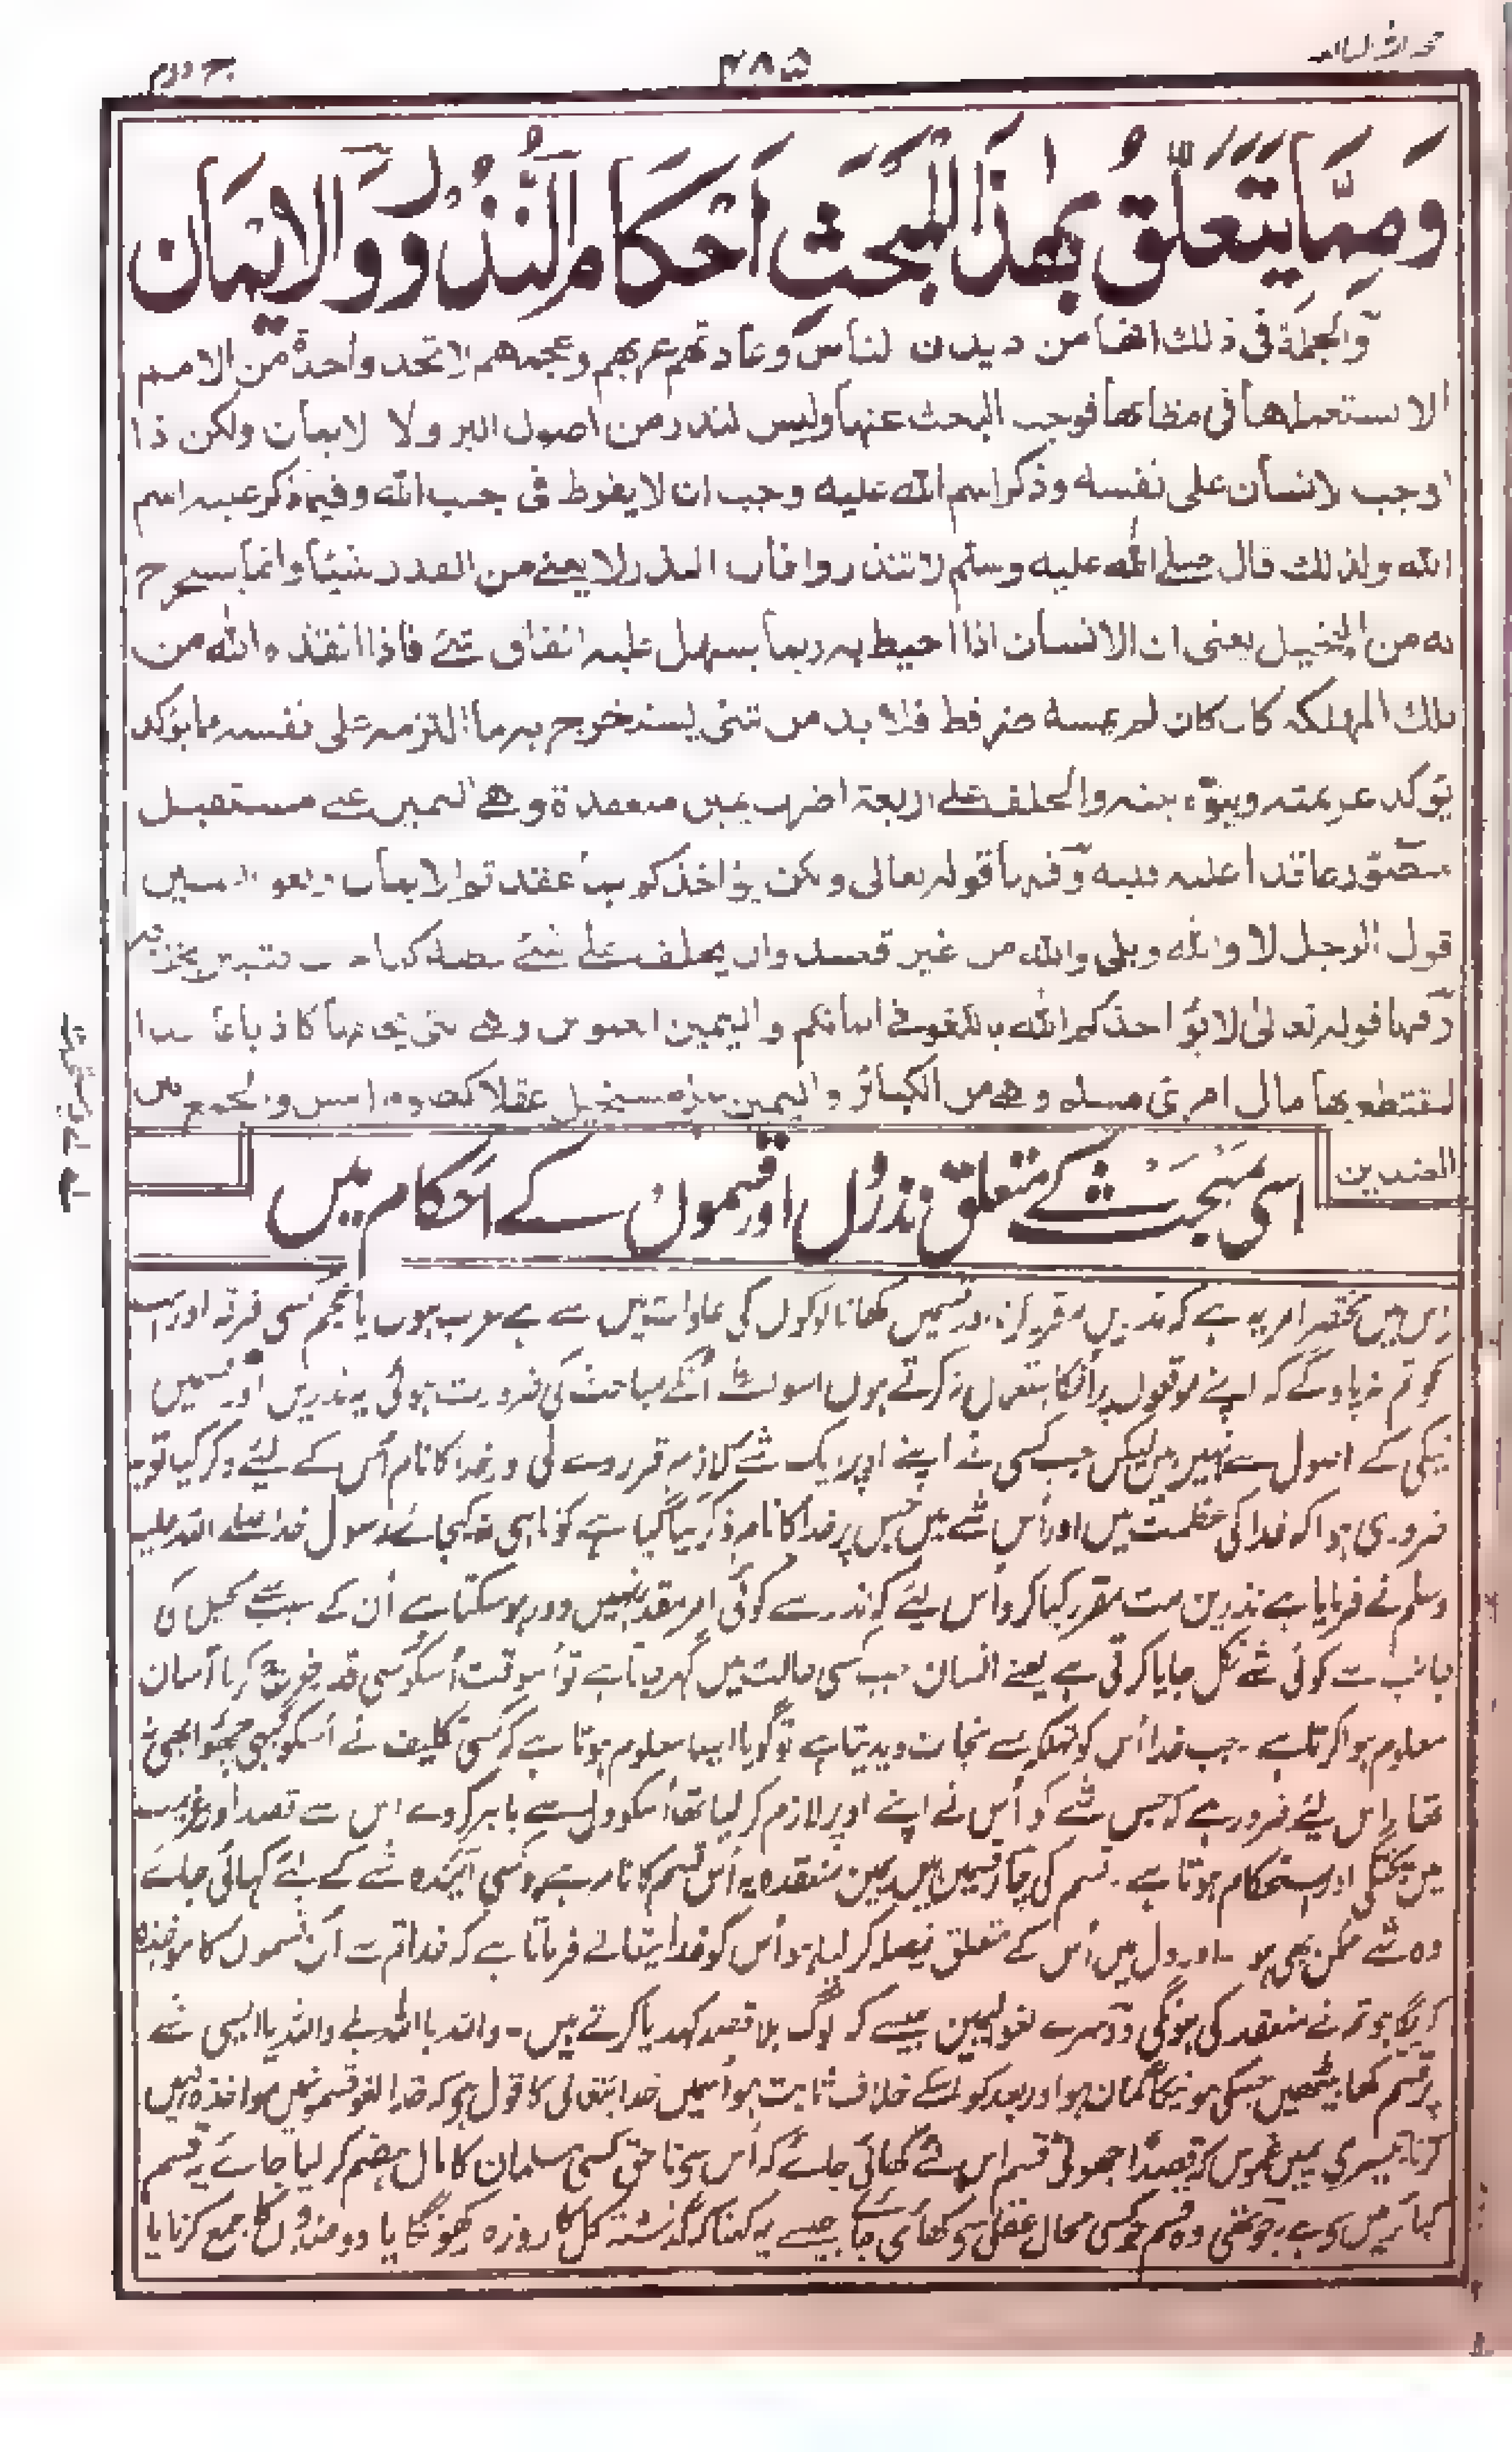 ۴۸۵
وَمِمَّا يَتَعَلَّقُ بِهٰذَا الْمَبْحَثِ اَحْكَامُ النُّذُوْرِ وَالْاَيْمَان
والجملة فى ذلك انها من ديدن الناس وعادتهم عربهم وعجمهم لا تجد واحدة من الامم
الا تستعملها فى مظانها فوجب البحث عنها وليس النذر من اصول البر ولا الايمان ولكن اذا
اوجب الانسان على نفسه وذكر اسم الله عليه وجب ان لا يفرط فى جنب الله وفيما ذكر عليه اسم
الله ولذلك قال صلے الله عليه وسلم لا تنذروا فان النذر لا يغنے من القدر شيئا وانما يستخرج
به من البخيل يعنى ان الانسان اذا احيط به ربما يسهل عليه انفاق شئے فاذا انقذه الله من
تلك المهلكة كان كان لم يمسه ضر قط فلا بد من شئ يستخرج به ما التزمه على نفسه مما يؤكد
يؤكد عزيمته وينوه بنيته والحلف علے اربعة اضرب يمين منعقدة وهے اليمين علے مستقبل
متصور عاقدا عليه قلبه وفيها قوله تعالى ولكن يؤاخذكم بما عقدتم الايمان ولغو اليمين
قول الرجل لا والله وبلى والله من غير قصد وان يحلف علے شئے يظنه كما حلف فتبين بخلافه
وفيها قوله تعالىٰ لا يؤاخذكم الله باللغو فے ايمانكم واليمين الغموس وهے التى يحلفها كاذبا عامدا
ليقتطع بها مال امرئ مسلم وهے من الكبائر واليمين على مستحيل عقلا كصوم امس والجمع بين
الضدين
اسی مبحث کے متعلق نذروں اور قسموں کے احکام میں
اس میں مختصر امر یہ ہے کہ نذریں مقرر کرنا اور قسمیں کھانا لوگوں کی عادات میں سے ہے عرب ہوں یا عجم کسی فرقہ اور
کو تم نہ پاوگے کہ اپنے موقعوں پر اُنکا استعمال نہ کرتے ہوں اسواسطے اُنکے مباحث کی ضرورت ہوئی یہ نذریں اور قسمیں
نیکی کے اصول سے نہیں ہیں لیکن جب کسی نے اپنے اوپر ایک شے لازم قرار دے لی اور خدا کا نام اُس کے لئے ذکر کیا تو یہ
ضروری ہوا کہ خدا کی عظمت میں اور اُس شے میں جس پر خدا کا نام ذکر کیا گیا ہے کوتاہی نہ کیجائے رسول خدا صلے اللہ علیہ
وسلم نے فرمایا ہے نذریں مت مقرر کیا کرو اُس لئے کہ نذر سے کوئی امر مقدر نہیں دور ہو سکتا ہے اُن کے سبب سے بخیل کی
جانب سے کوئی شے نکل جایا کرتی ہے یعنے انسان جب کسی حالت میں گھر جاتا ہے تو اُسوقت اُسکو کسی قدر خرچ کرنا آسان
معلوم ہوا کرتا ہے۔ جب خدا اُس کو مہلکہ سے نجات دیدیتا ہے تو گویا ایسا معلوم ہوتا ہے کہ کسی تکلیف نے اُسکو کبھی چھوا بھی نہ
تھا اِس لئے ضرور ہے کہ جس شے کو اُس نے اپنے اوپر لازم کر لیا تھا اُسکو دل سے باہر کر دے اس سے قصد اور عزیمت
میں پختگی اور استحکام ہوتا ہے۔ قسم کی چار قسمیں ہیں یمین منعقدہ یہ اُس قسم کا نام ہے جو کسی آیندہ شے کے لئے کھائی جائے
وہ شے ممکن بھی ہو۔ اور دل میں اُس کے متعلق فیصلہ کر لیا ہو اُس کو خدا یتعالے فرماتا ہے کہ خدا تم سے اُن قسموں کا مواخذہ
کریگا جو تم نے منعقد کی ہونگی دوسرے لغو یمین جیسے کہ لوگ بلا قصد کہدیا کرتے ہیں۔ واللہ باللہ بلے واللہ یا ایسی شے
پر قسم کھا بیٹھیں جسکی ہونیکا گمان ہو اور بعد کو اسکے خلاف ثابت ہو اُسمیں خدا یتعالی کا قول ہے کہ خدا لغو قسموں میں مواخذہ نہیں
کرتا تیسری یمین غموس کہ قصداً جھوٹی قسم اس لئے کھائی جائے کہ اُس سے ناحق کسی مسلمان کا مال ہضم کر لیا جائے یہ قسم
کبائر میں سے ہے۔ چوتھی وہ قسم جو کسی محال عقلی پر کھائی جائے جیسے یہ کہنا کہ گذشتہ کل کا روزہ رکھونگا یا دو ضدوں کا جمع کرنا یا